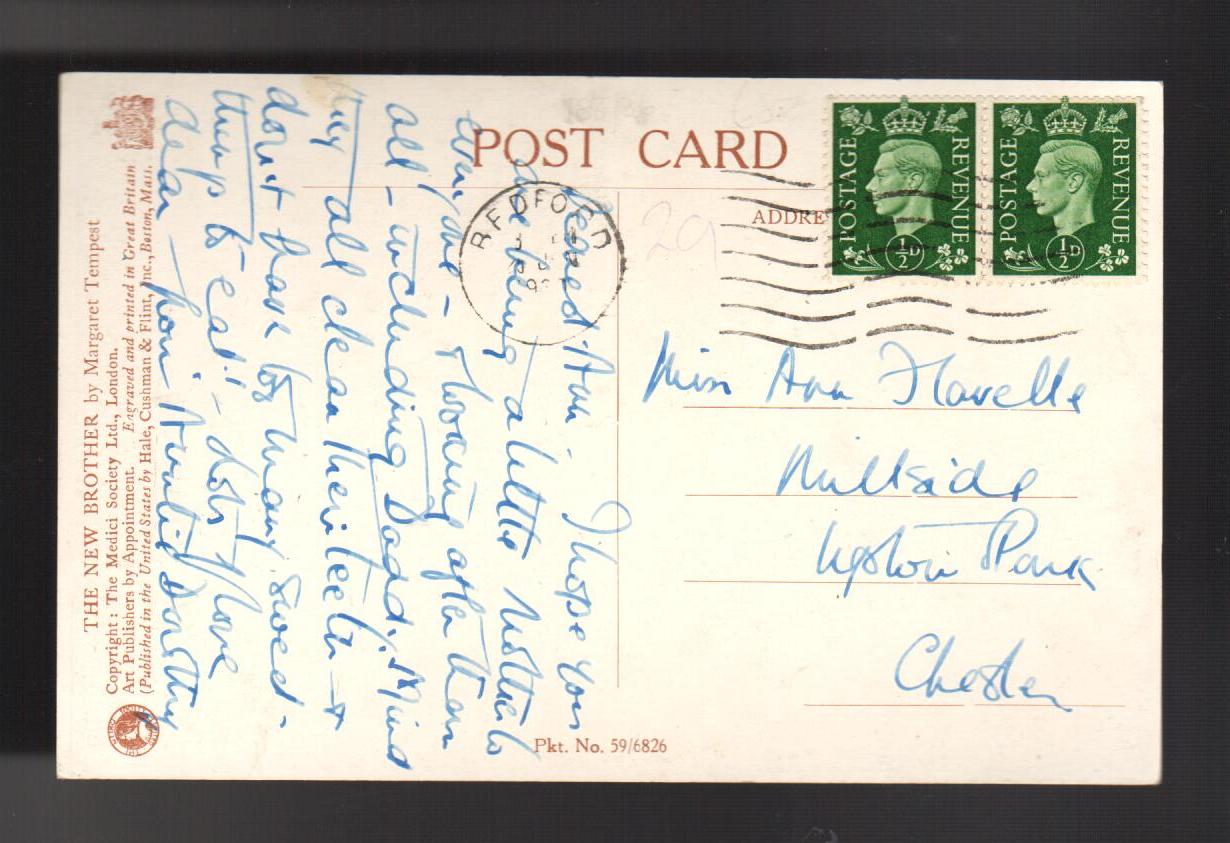 POST CARD
ADDRE
POSTAGE REVENUE ½D
POSTAGE REVENUE ½D
BEDFORD
29
Dearest Ann - I hope you
are being a little mother to
everyone - & looking after them
all - including Daddy. Mind
they all clean their teeth - &
don't have too many sweet-
things to eat! - lots of love
dear from Auntie Dorothy
Miss Ann Flavelle
Millside
Upton Park
Chester
THE NEW BROTHER by Margaret Tempest
Copyright: The Medici Society Ltd., London.
Art Publishers by Appointment. Engraved and printed in Great Britain
(Published in the United States by Hale, Cushman & Flint, Inc., Boston, Mass.
Pkt. No. 59/6826